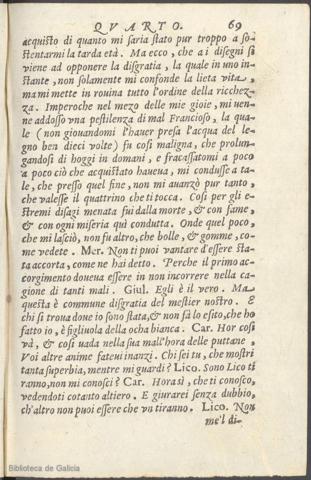 QVARTO. 69
acquisto di quanto mi saria stato pur troppo a so-
stentarmi la tarda età. Ma ecco, che a i disegni si
viene ad opponere la disgratia, la quale in uno in-
stante, non solamente mi confonde la lieta vita,
ma mi mette in rouina tutto l'ordine della ricchez-
za. Imperoche nel mezo delle mie gioie, mi uen-
ne addosso vna pestilenza di mal Francioso, la qua-
le (non giouandomi l'hauer presa l'acqua del le-
gno ben dieci volte) fu cosi maligna, che prolun-
gandosi di hoggi in domani, e fracassatomi a poco
a poco ciò che acquistato haueua, mi condusse a ta-
le, che presso quel fine, non mi auanzò pur tanto,
che valesse il quattrino che ti tocca. Cosi per gli e-
stremi disagi menata fui dalla morte, & con fame,
& con ogni miseria quà condutta. Onde quel poco,
che mi lasciò, non fu altro, che bolle, & gomme, co-
me vedete. Mer. Non ti puoi vantare d'essere sta-
ta accorta, come ne hai detto. Perche il primo ac-
corgimento doueua essere in non incorrere nella ca-
gione di tanti mali. Giul. Egli è il vero. Ma
questa è commune disgratia del mestier nostro. E
chi si troua doue io sono stata, & non fà lo esito, che ho
fatto io, è figliuola della ocha bianca. Car. Hor cosi
và, & cosi uada nella sua mal'hora delle puttane.
Voi altre anime fateui inanzi. Chi sei tu, che mostri
tanta superbia, mentre mi guardi? Lico. Sono Lico ti
ranno, non mi conosci? Car. Hora sì, che ti conosco,
vedendoti cotanto altiero. E giurarei senza dubbio,
ch'altro non puoi essere che vn tiranno. Lico. Non
me'l di-
Biblioteca de Galicia